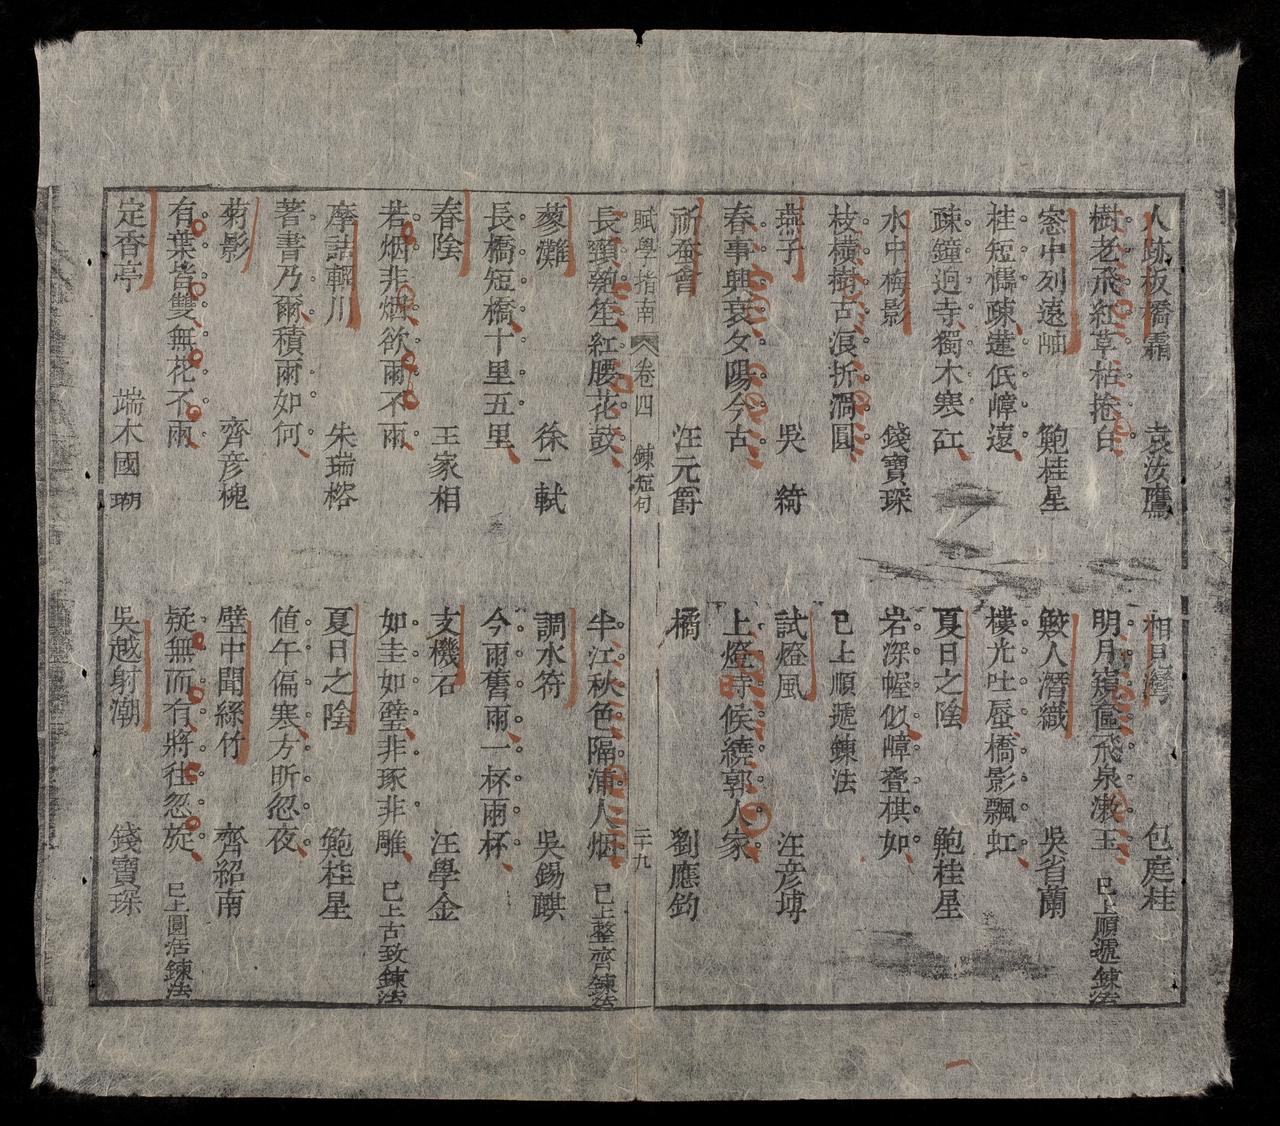 人跡板橋霜 袁汝鷹 相見灣 包庭桂
樹老飛紅草枯捲白 明月窺奩飛泉漱玉 已上順遞鍊法
窓中列遠岫 鮑桂星 鮫人潛織 吳省蘭
桂短儷疎蓬低嶂遠 樓光吐蜃橋影飄虹
疎鐘迥寺獨木寒矼 夏日之陰 鮑桂星
水中梅影 錢寶琛 岩深幄似嶂叠棋如
枝橫樹古浪折渦圓 已上順遞鍊法
燕子 吳綺 試燈風 汪彥博
春事興衰夕陽今古 上燈時候繞郭人家
祈蚕會 汪元爵 橘 劉應鈞
賦學指南 卷四 鍊短句 二十九
長頸匏笙紅腰花鼓 半江秋色隔浦人烟 已上整齊鍊法
蓼灘 徐一軾 調水符 吳錫麒
長橋短橋十里五里 今雨舊雨一杯兩杯
春陰 王家相 支機石 汪學金
若烟非烟欲雨不雨 如圭如璧非琢非雕 已上古致鍊法
摩詰輞川 朱瑞榕 夏日之陰 鮑桂星
著書乃爾積雨如何 値午偏寒方昕忽夜
菊影 齊彥槐 壁中聞絲竹 齊紹南
有葉皆雙無花不兩 疑無而有將往忽旋 已上圓活鍊法
定香亭 端木國瑚 吳越射潮 錢寶琛